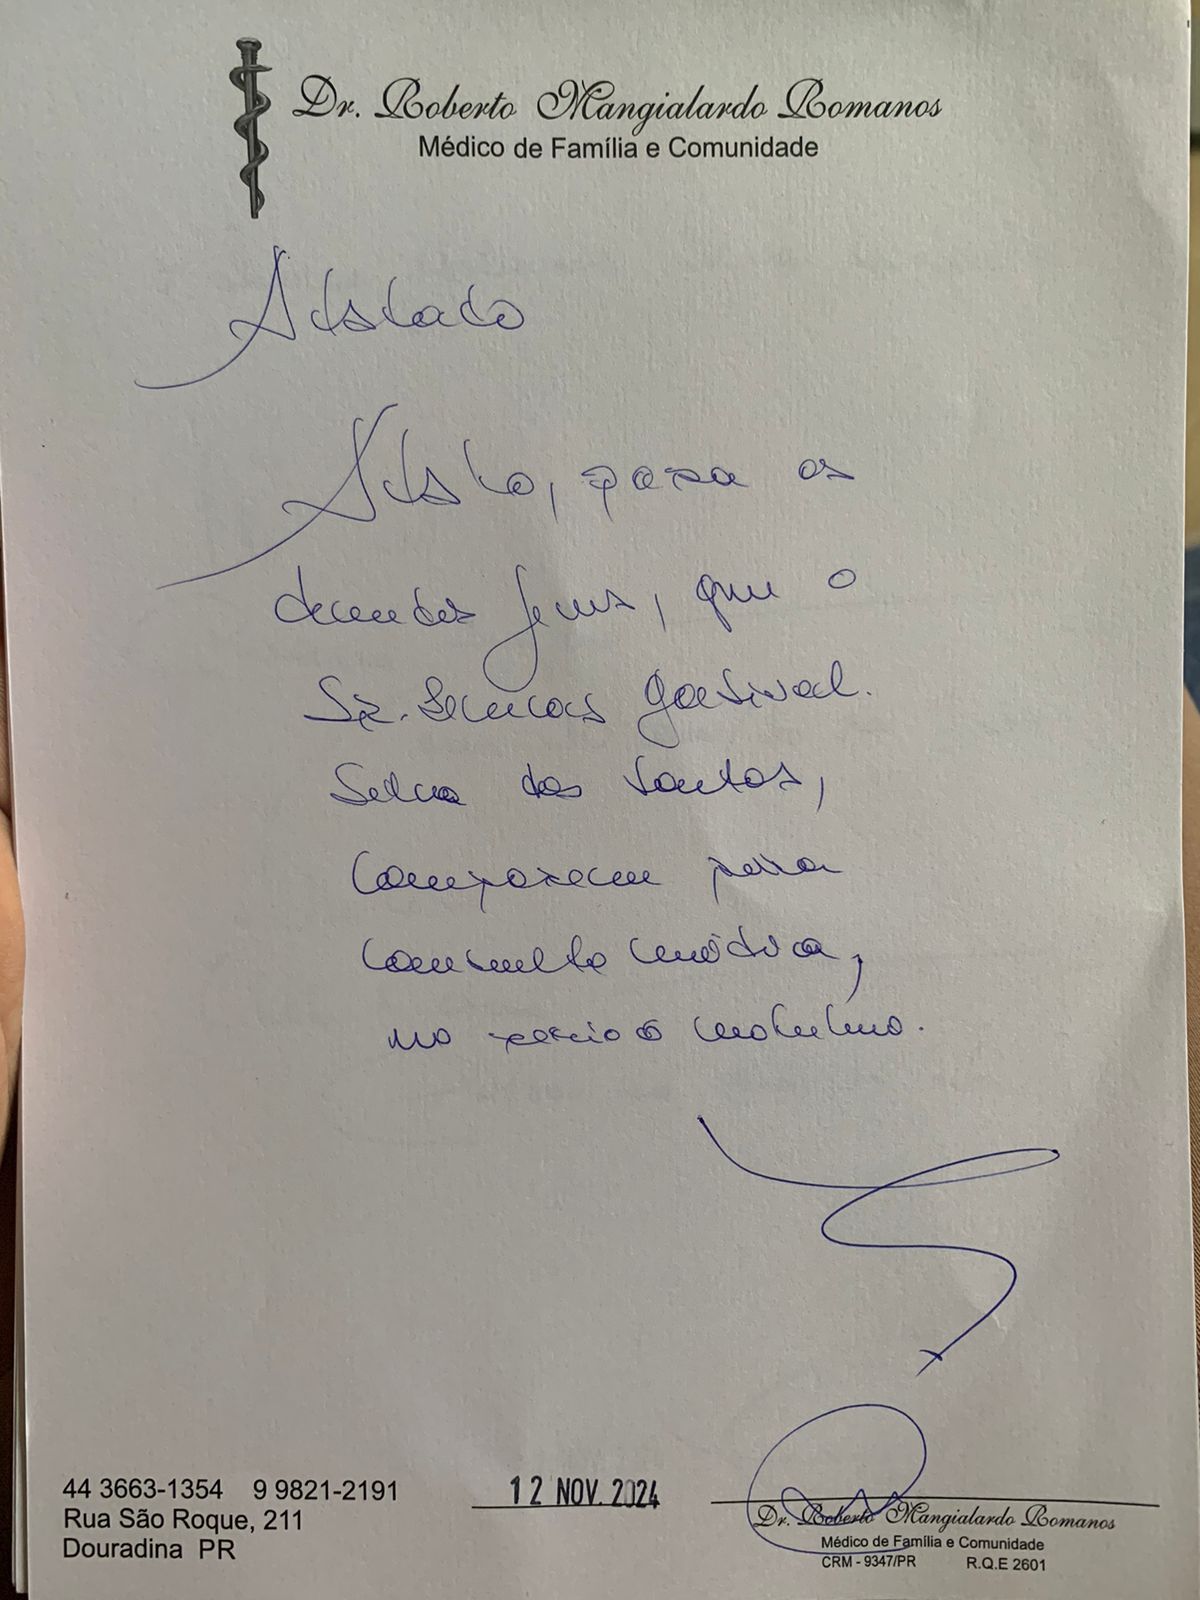 Dr. Roberto Mangialardo Romanos
Médico de Família e Comunidade
Atestado
Atesto, para os
devidos fins, que o
Sr. Gorival
Silva dos Santos,
compareceu para
consulta médica,
no período matutino.
44 3663-1354 9 9821-2191
Rua São Roque, 211
Douradina PR
12 NOV. 2024
Dr. Roberto Mangialardo Romanos
Médico de Família e Comunidade
CRM - 9347/PR R.Q.E 2601